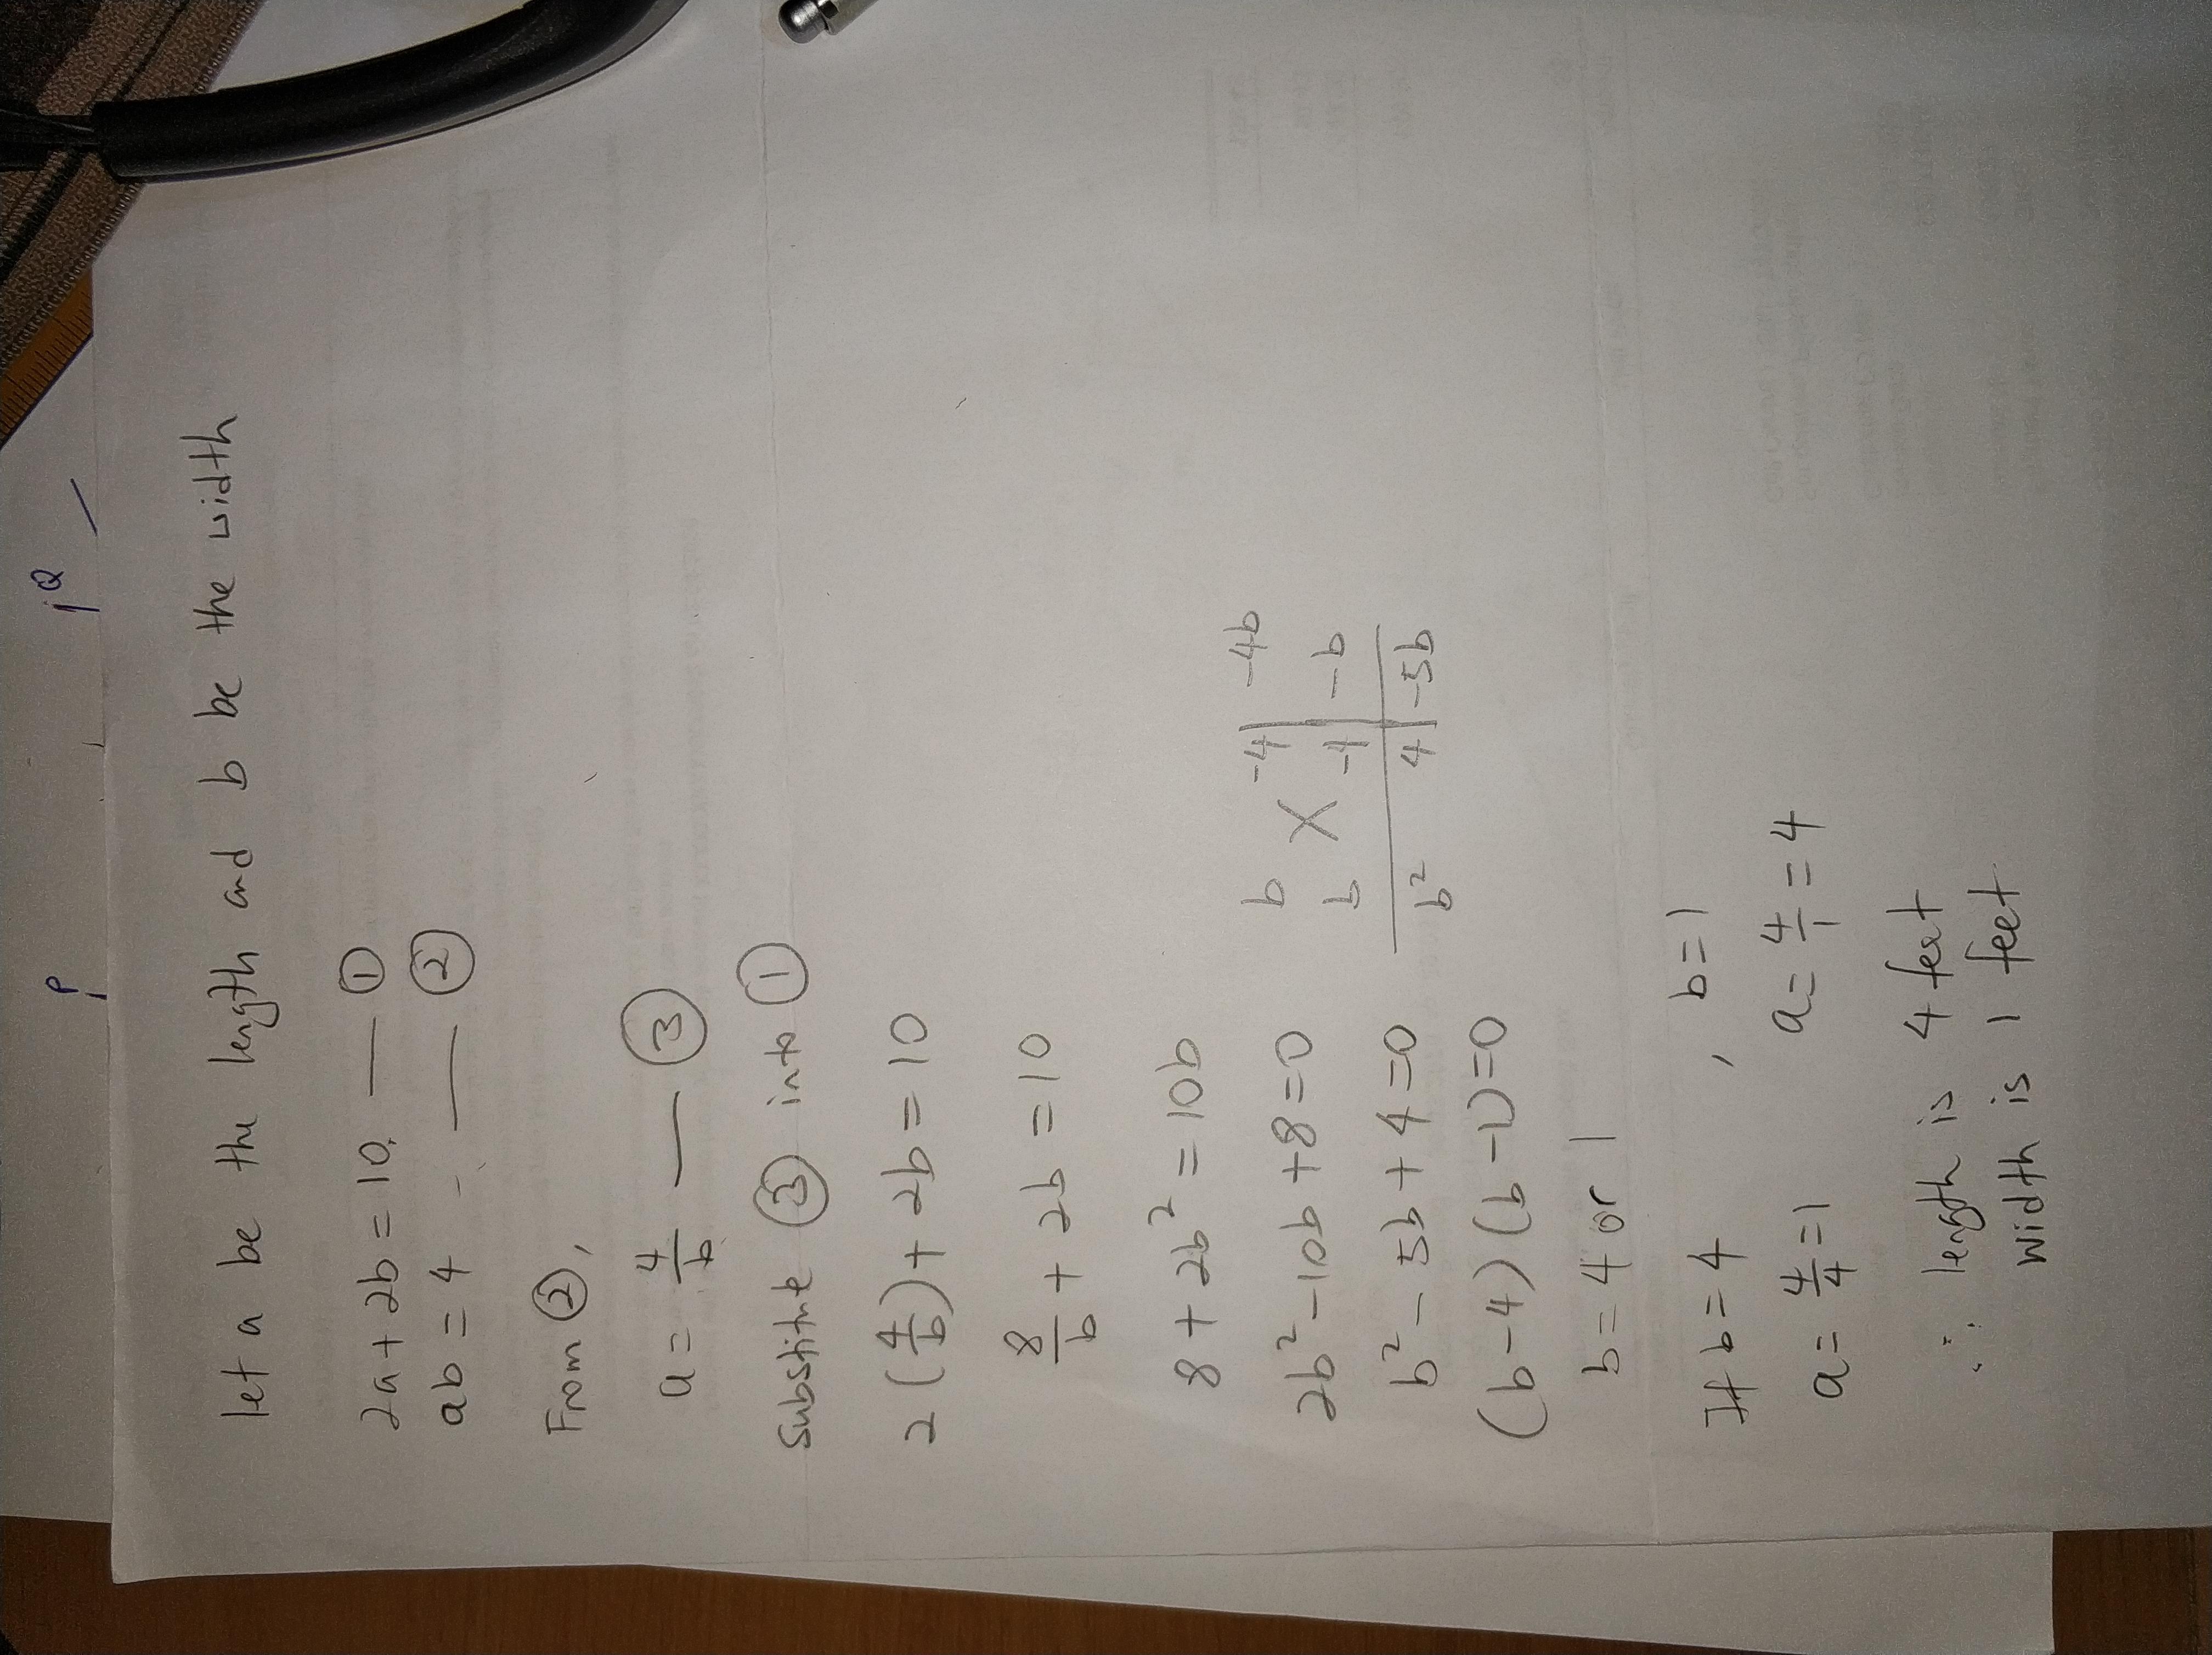 let a be the length and b be the width
2a + 2b = 10 — ①
ab = 4 — ②
From ②,
a = 4/b — ③
Substitute ③ into ①
2(4/b) + 2b = 10
8/b + 2b = 10
8 + 2b² = 10b
2b² - 10b + 8 = 0
b² - 5b + 4 = 0
(b - 4)(b - 1) = 0
b = 4 or 1
b -4 | -4b
b -1 | -b
b² 4 | -5b
If b = 4 , b = 1
a = 4/4 = 1 a = 4/1 = 4
∴ length is 4 feet
width is 1 feet